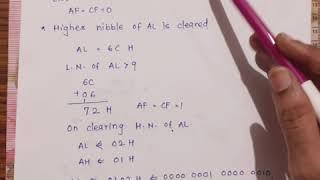 AF = CF = 0
* Higher nibble of AL is cleared
AL = 6C H
L.N. of AL > 9
6C
+06
72 H AF = CF = 1
On clearing H.N. of AL
AL ← 02 H
AH ← 01 H
0102 H ← 0000 0001 0000 0010